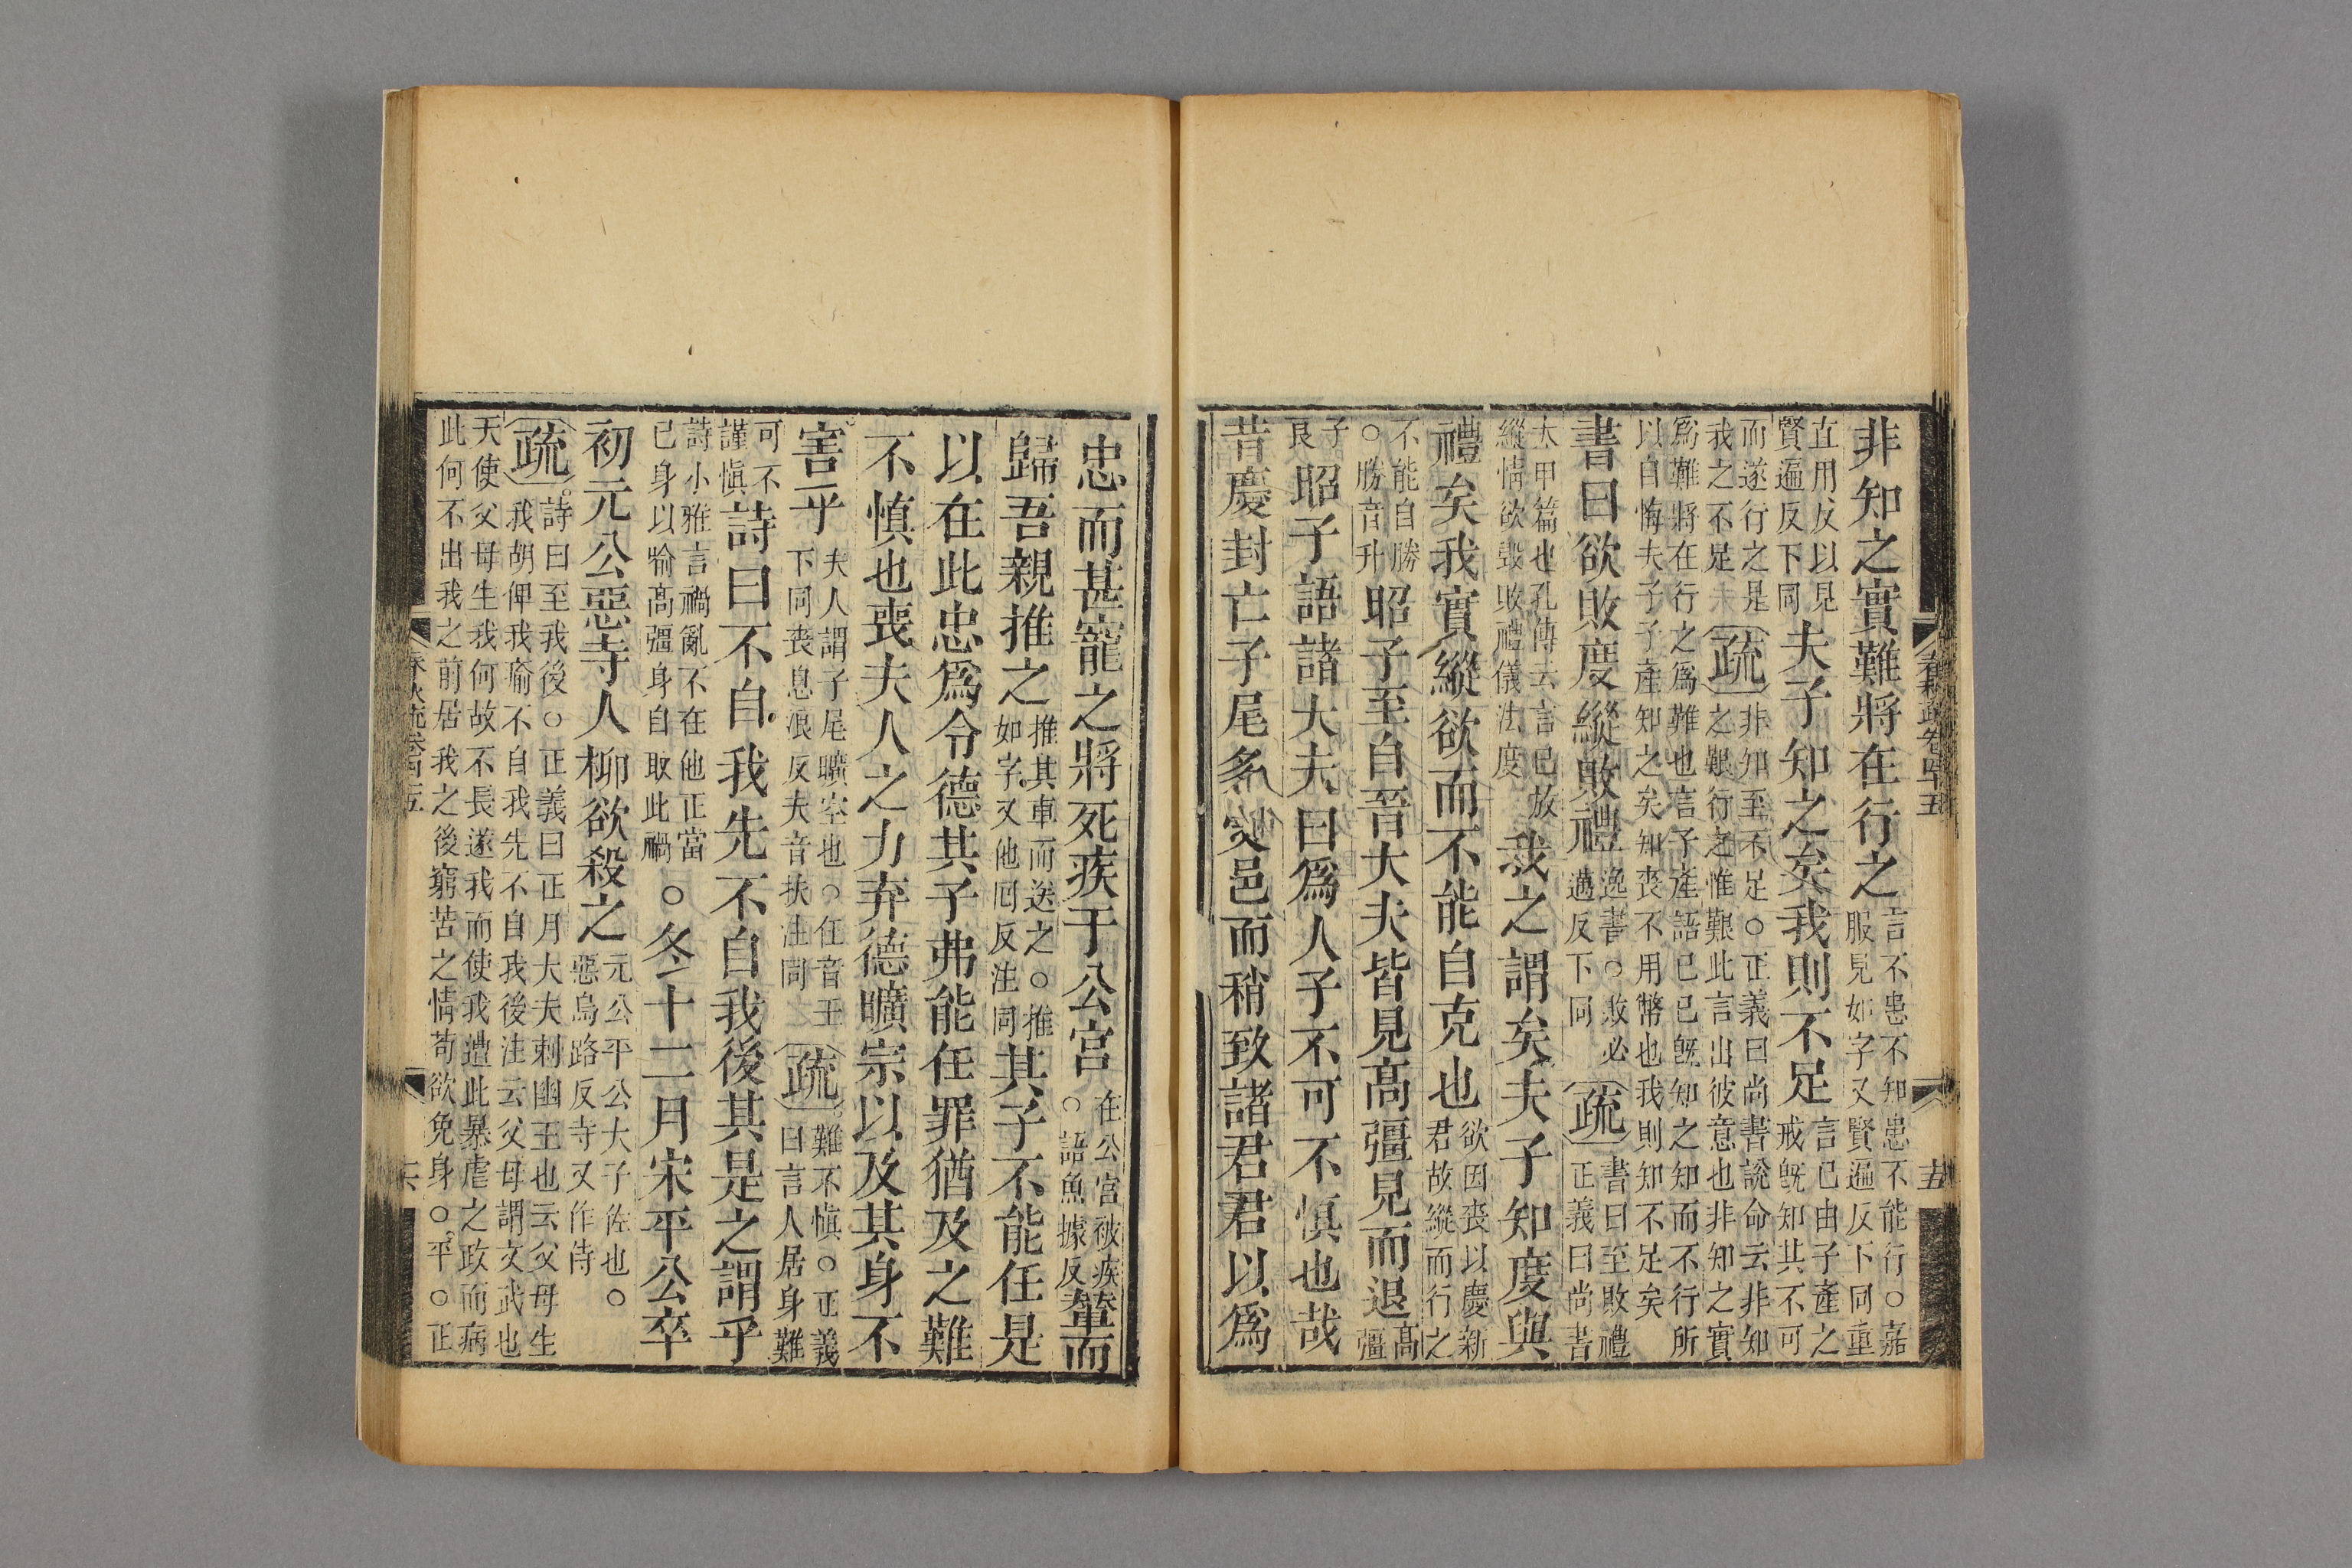 非知之實難將在行之
言不患不知患不能行○嘉
服見如字又賢遍反下同重
直用反以見
賢遍反下同
夫子知之矣我則不足
言已由子產之
戒旣知其不可
而遂行之是
我之不足
疏
非知至不足○正義曰尚書說命云非知
之艱行之惟艱此言出彼意也非知之實
爲難將在行之爲難也言子產語已已旣知之知而不行所
以自悔夫子子產知之矣知喪不用幣也我則知不足矣
書曰欲敗度縱敗禮
逸書○敗必
邁反下同
疏
書曰至敗禮
正義曰尚書
太甲篇也孔傳云言已放
縱情欲毀敗禮儀法度
我之謂矣夫子知度與
禮矣我實縱欲而不能自克也
欲因喪以慶新
君故縱而行之
不能自勝
○勝音升
昭子至自晉大夫皆見高彊見而退
高
彊
子
良
昭子語諸大夫曰爲人子不可不慎也哉
昔慶封亡子尾多受邑而稍致諸君君以爲
忠而甚寵之將死疾于公宮
在公宮被疾
○語魚據反
輦而
歸吾親推之
推其車而送之○推
如字又他回反注同
其子不能任是
以在此忠爲令德其子弗能任罪猶及之難
不慎也喪夫人之力弃德曠宗以及其身不
害乎
夫人謂子尾曠空也○任音壬
下同喪息浪反夫音扶注同
疏
難不慎○正義
曰言人居身難
可不
謹慎
詩曰不自我先不自我後其是之謂乎
詩小雅言禍亂不在他正當
已身以喻高彊身自取此禍
○冬十二月宋平公卒
初元公惡寺人柳欲殺之
元公平公大子佐也○
惡烏路反寺又作侍
疏
詩曰至我後○正義曰正月大夫刺幽王也云父母生
我胡俾我瘉不自我先不自我後注云父母謂文武也
天使父母生我何故不長遂我而使我遭此暴虐之政而病
此何不出我之前居我之後窮苦之情苟欲免身○平○正
春秋疏卷四十五
五
春秋疏卷四十五
六